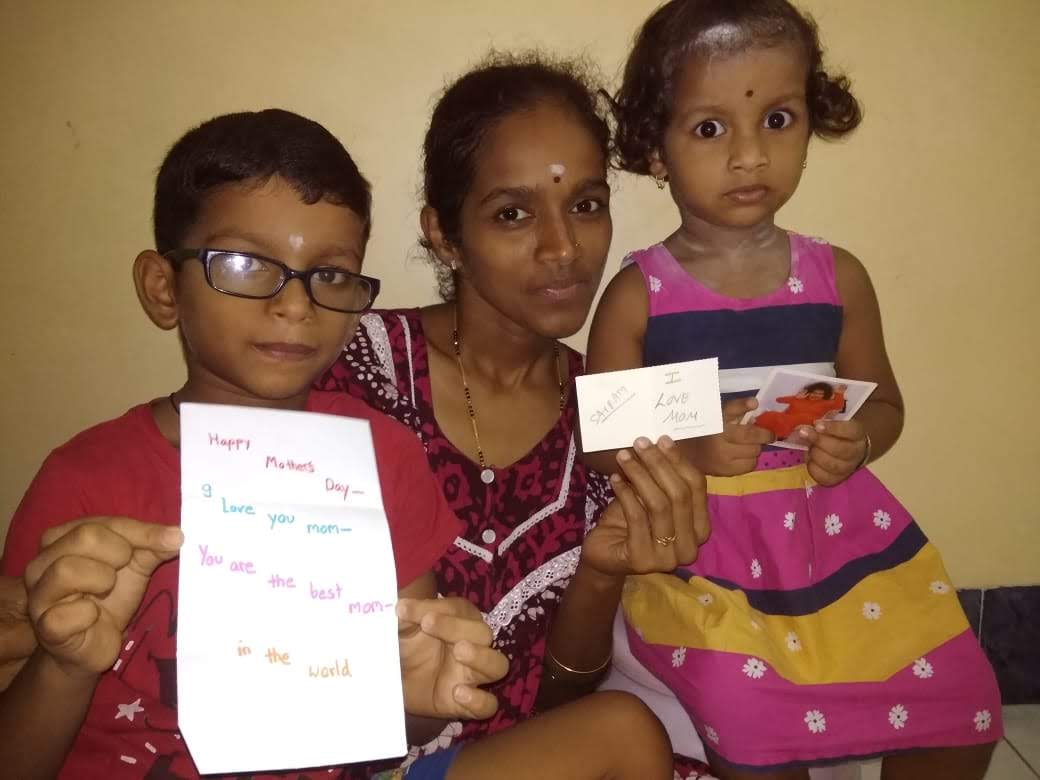 Happy
Mothers
Day—
I
Love you mom—
You are
the best
mom—
in the
world
SAIRAM
I
LOVE
MOM